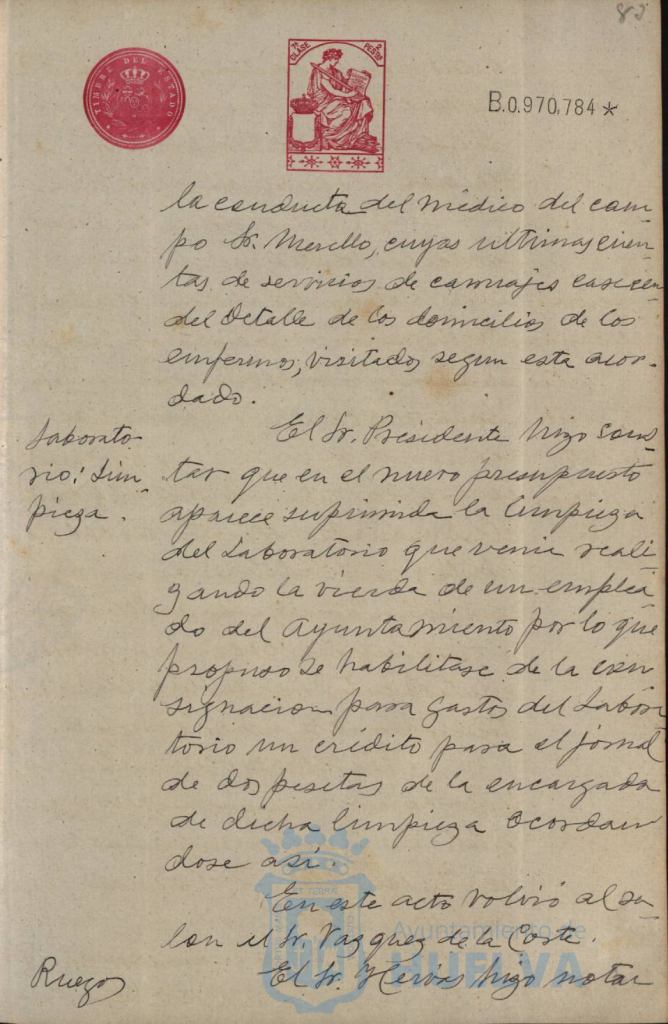 82
TIMBRE DEL ESTADO
7ª CLASE
2 PESTAS
B.0.970.784 *
la conducta del médico del cam-
po Sr. Merello, cuyas ultimas cuen-
tas de servicios de carruajes carecen
del detalle de los domicilios de los
enfermos, visitados segun esta acor-
dado.
Laborato-
rio: Lim-
pieza.
El Sr. Presidente hizo cons-
tar que en el nuevo presupuesto
aparece suprimida la limpieza
del Laboratorio que venia reali-
zando la viuda de un emplea-
do del Ayuntamiento por lo que
propuso se habilitase de la con-
signacion para gastos del Labora-
torio un crédito para el jornal
de dos pesetas de la encargada
de dicha limpieza acordan-
dose asi.
En este acto volvió al sa-
lon el Sr. Vazquez de la Corte.
Ruegos
El Sr. Hervas hizo notar
Ayuntamiento de
HUELVA